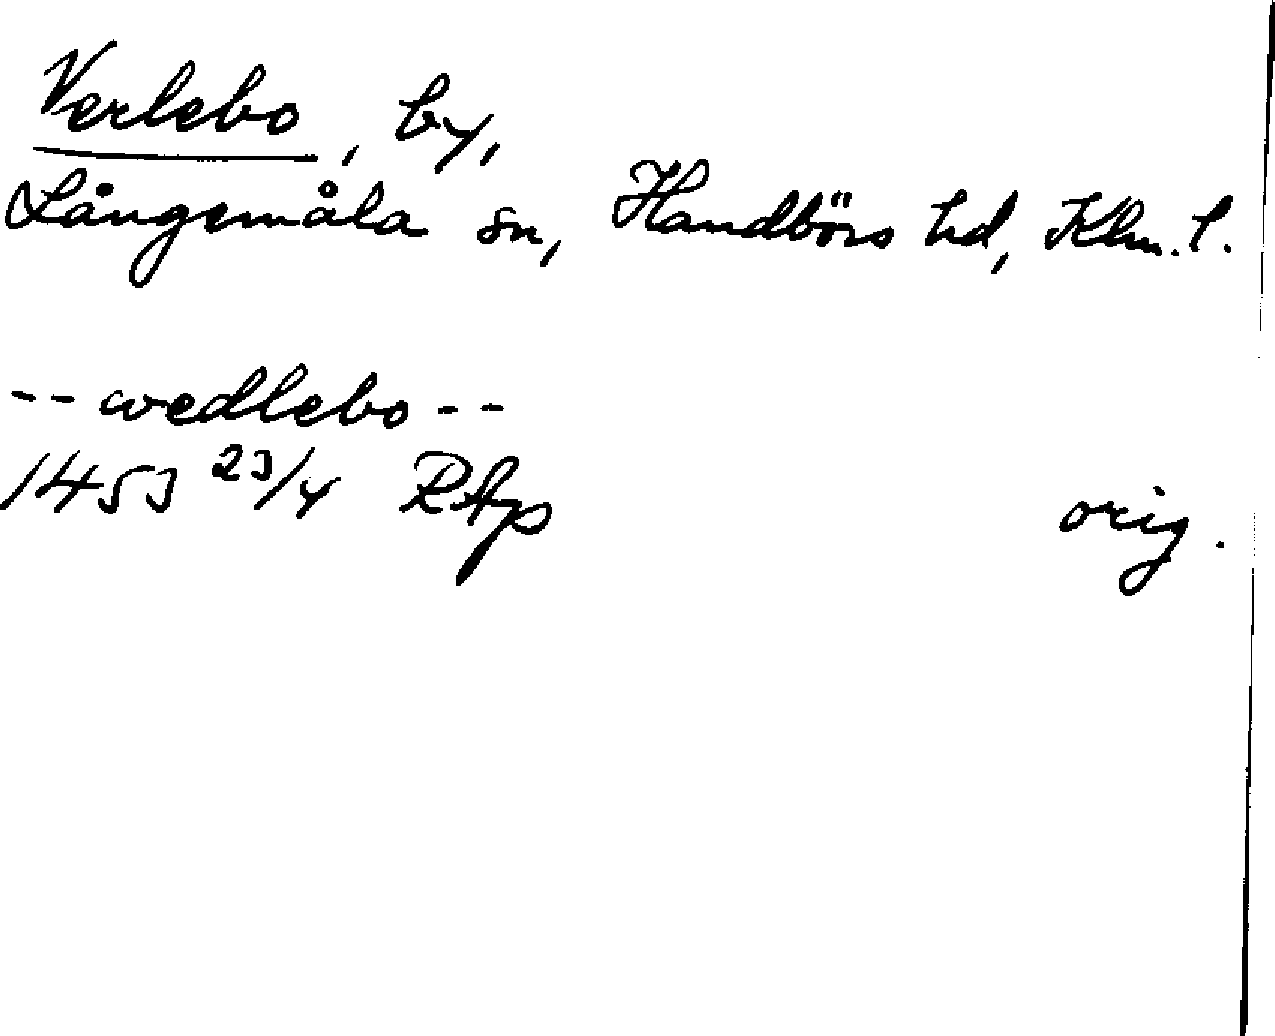 Verlebo, by,
Långemåla sn, Handbörs hd, Klm. l.
-- wedlebo --
1453 23/4 RAp orig.